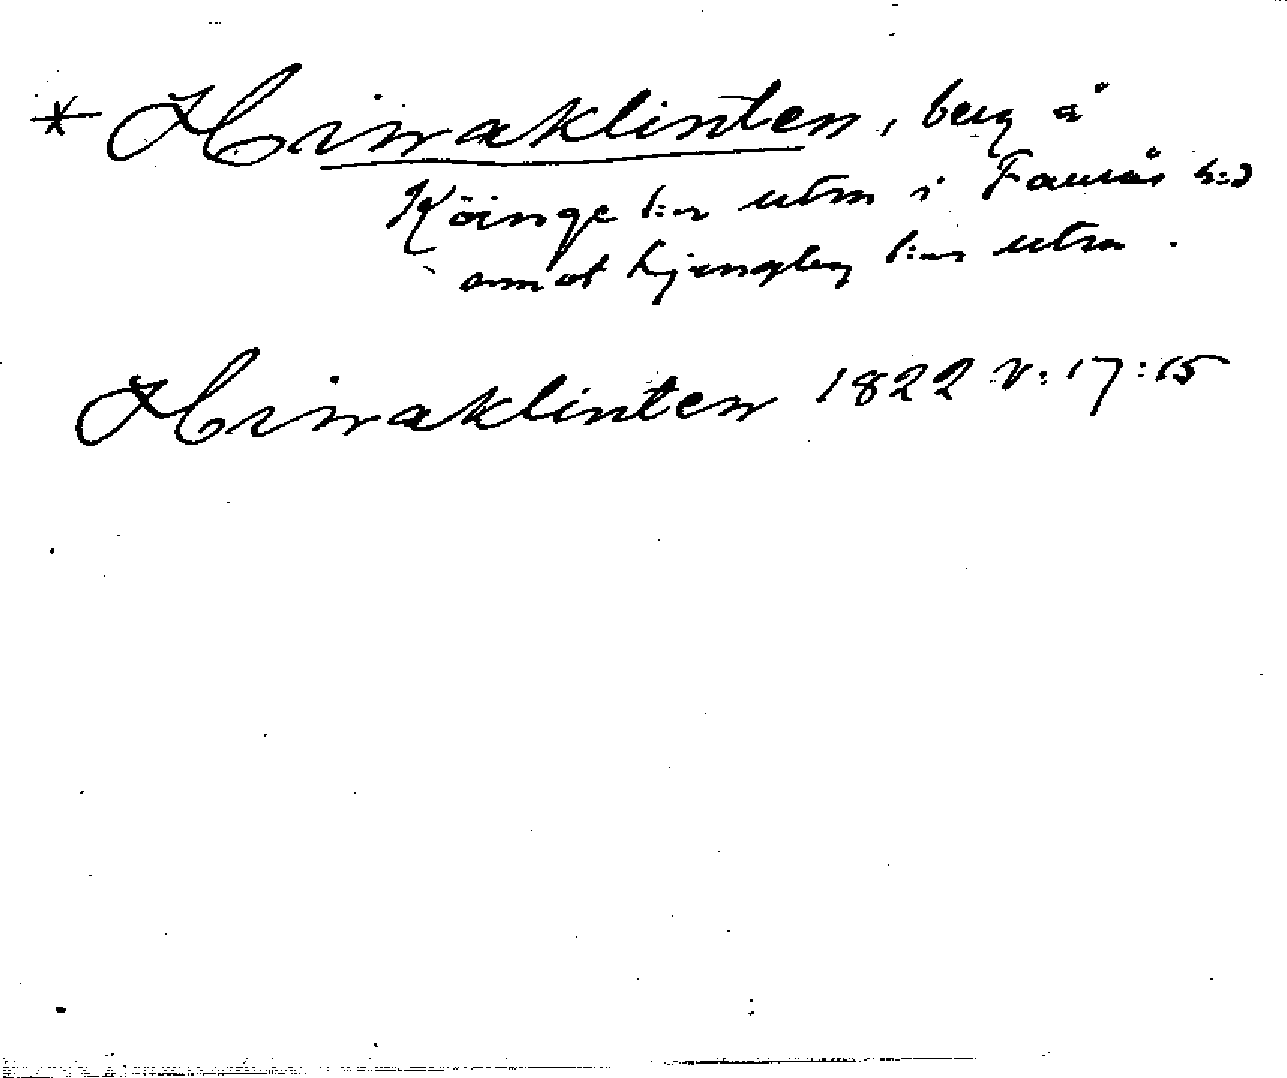 * Hinaklinten, berg å
Köinge k:ns utm i Fauräs h:d
omot Ljungby k:ns utm.
Hinaklinten 1822 V:17:15